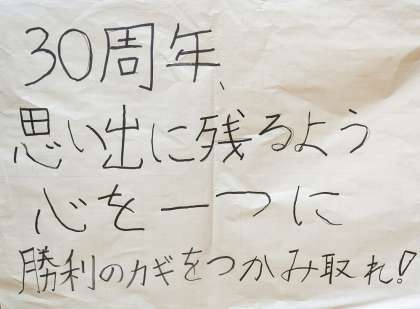 30周年、
思い出に残るよう
心を一つに
勝利のカギをつかみ取れ!